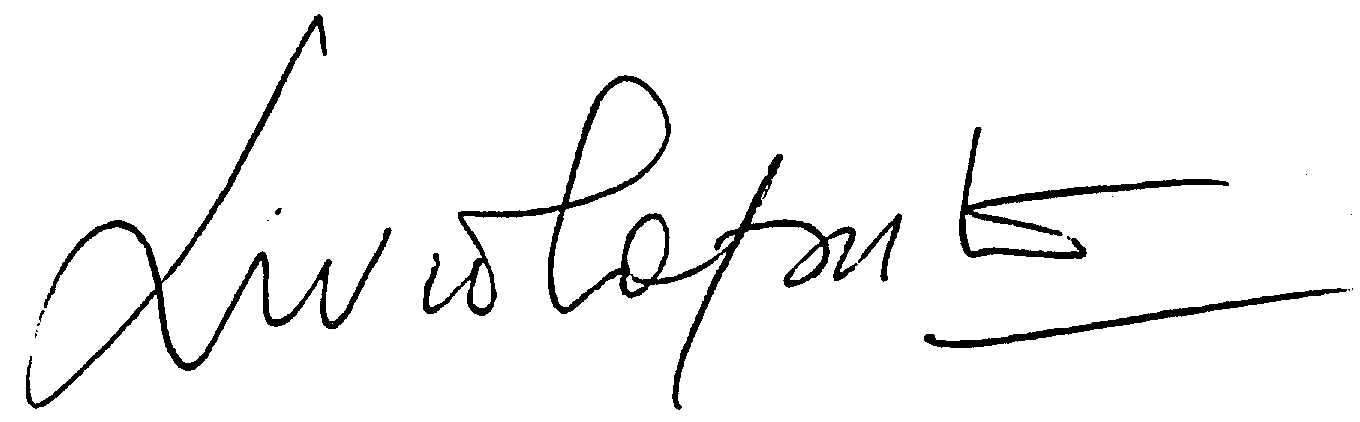 Livio Caputo